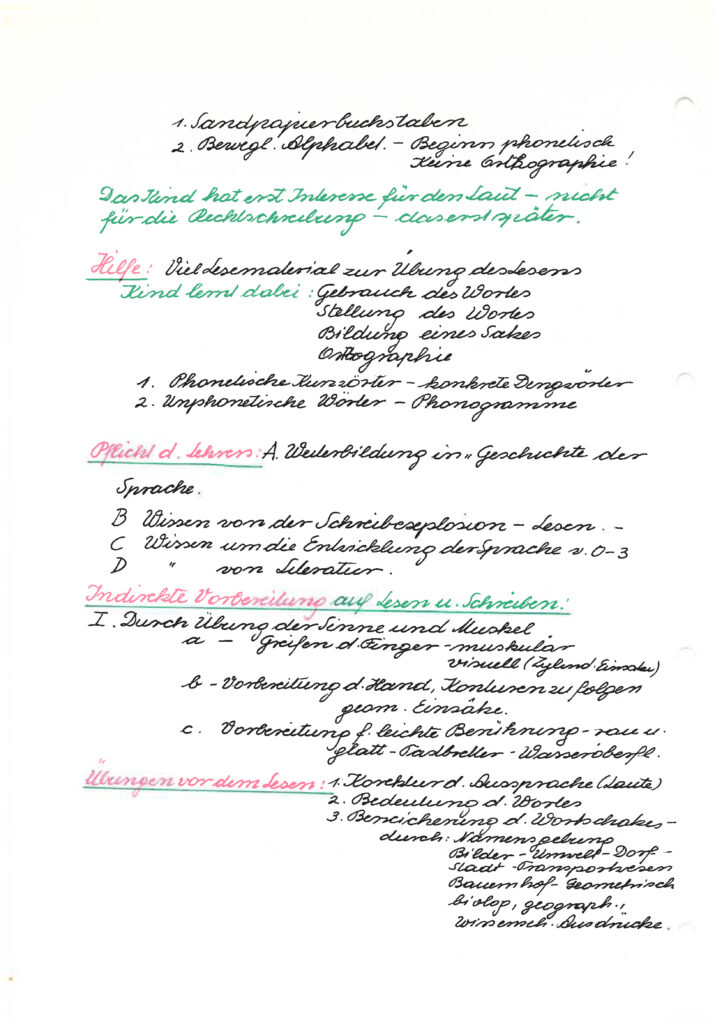 1. Sandpapierbuchstaben
2. Bewegl. Alphabet. – Beginn phonetisch
Keine Orthographie!
Das Kind hat erst Interesse für den Laut – nicht
für die Rechtschreibung – das erst später.
Hilfe: Viel Lesematerial zur Übung des Lesens
Kind lernt dabei: Gebrauch des Wortes
Stellung des Wortes
Bildung eines Satzes
Orthographie
1. Phonetische Kurzwörter – konkrete Dingwörter
2. Unphonetische Wörter – Phonogramme
Pflicht d. Lehrers: A. Weiterbildung in „Geschichte der
Sprache.
B Wissen von der Schreibexplosion – Lesen. –
C Wissen um die Entwicklung der Sprache v. 0–3
D " von Literatur.
Indirekte Vorbereitung auf Lesen u. Schreiben:
I. Durch Übung der Sinne und Muskel.
a – Greifen d. Finger – muskular
visuell (Zylind. Einsätze)
b – Vorbereitung d. Hand, Konturen zu folgen
geom. Einsätze.
c. Vorbereitung f. leichte Berührung – rau u.
glatt – Tastbretter – Wasseroberfl.
Übungen vor dem Lesen: 1. Korektur d. Aussprache (Laute)
2. Bedeutung d. Wortes
3. Bereicherung d. Wortschatzes –
durch: Namensgebung
Bilder – Umwelt – Dorf –
Stadt – Transportwesen
Bauernhof – Geometrisch
biolog, geograph.,
wissensch. Ausdrücke.